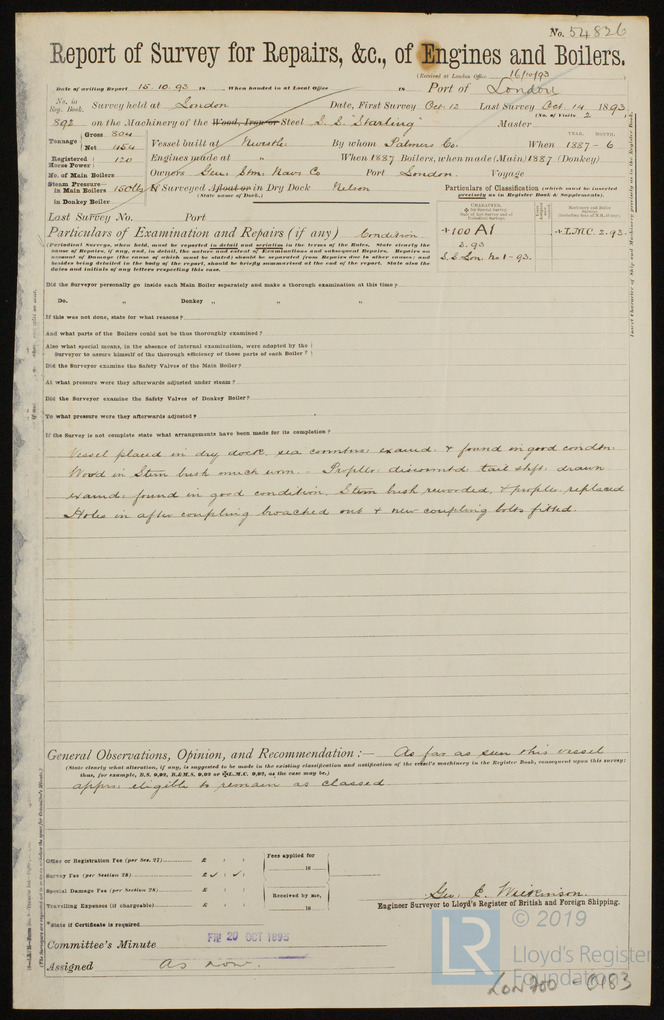 No. 54826
Report of Survey for Repairs, &c., of Engines and Boilers.
(Received at London Office 16/10/93)
Date of writing Report 15.10.93 18 When handed in at Local Office 18 Port of London
No. in Reg. Book. Survey held at London Date, First Survey Oct. 12 Last Survey Oct. 14 1893
892 on the Machinery of the Wood, Iron or Steel S.S. "Starling" Master (No. of Visits 2)
Tonnage Gross 304 Net 454 Vessel built at Newcstle By whom Palmers Co. When YEAR. MONTH. 1887 - 6
Registered Horse Power 120 Engines made at " When 1887 Boilers, when made (Main) 1887 (Donkey)
No. of Main Boilers Owners Gen. Stm. Navn Co Port London Voyage
Steam Pressure in Main Boilers 150 lbs If Surveyed Afloat or in Dry Dock Nelson
(State name of Dock.)
in Donkey Boiler
Particulars of Classification (which must be inserted precisely as in Register Book & Supplements).
Last Survey No. Port
Particulars of Examination and Repairs (if any) Condition
+100 A1 +L.M.C. 2.93.
2.93
S.S. Lon. No 1-93.
(Periodical Surveys, when held, must be reported in detail and seriatim in the terms of the Rules. State clearly the
cause of Repairs, if any, and, in detail, the nature and extent of Examinations and subsequent Repairs. Repairs on
account of Damage (the cause of which must be stated) should be separated from Repairs due to other causes; and
besides being detailed in the body of the report, should be briefly summarised at the end of the report. State also the
dates and initials of any letters respecting this case.
Did the Surveyor personally go inside each Main Boiler separately and make a thorough examination at this time?
Do. " Donkey " " "
If this was not done, state for what reasons?
And what parts of the Boilers could not be thus thoroughly examined?
Also what special means, in the absence of internal examination, were adopted by the
Surveyor to assure himself of the thorough efficiency of those parts of each Boiler?
Did the Surveyor examine the Safety Valves of the Main Boiler?
At what pressure were they afterwards adjusted under steam?
Did the Surveyor examine the Safety Valves of Donkey Boiler?
To what pressure were they afterwards adjusted?
If the Survey is not complete state what arrangements have been made for its completion?
Vessel placed in dry dock, sea conntns: examd: & found in good condtn:
Wood in Stern bush much worn. - Propller: disconntd tail shft: drawn
examd: found in good condition. Stern bush rewooded, & propller replaced
Holes in after coupling broached out & new coupling bolts fitted.
General Observations, Opinion, and Recommendation :— As far as seen this vessel
(State clearly what alteration, if any, is suggested to be made in the existing classification and notification of the vessel's machinery in the Register Book, consequent upon this survey;
thus, for example, B.S. 9,92, B.&M.S. 9,92 or L.M.C. 9,92, as the case may be.)
apprs: eligible to remain as classed
Office or Registration Fee (per Sec. 27) £ : :
Survey Fee (per Section 28) £ : :
Special Damage Fee (per Section 28) £ : :
Travelling Expenses (if chargeable) £ : :
Fees applied for
18
Received by me,
18
Geo. E. Wilkinson.
Engineer Surveyor to Lloyd's Register of British and Foreign Shipping.
*State if Certificate is required
Committee's Minute FRI 20 OCT 1893
Assigned As now.
LR
© 2019
Lloyd's Register
Foundation
LON 700 - 0183